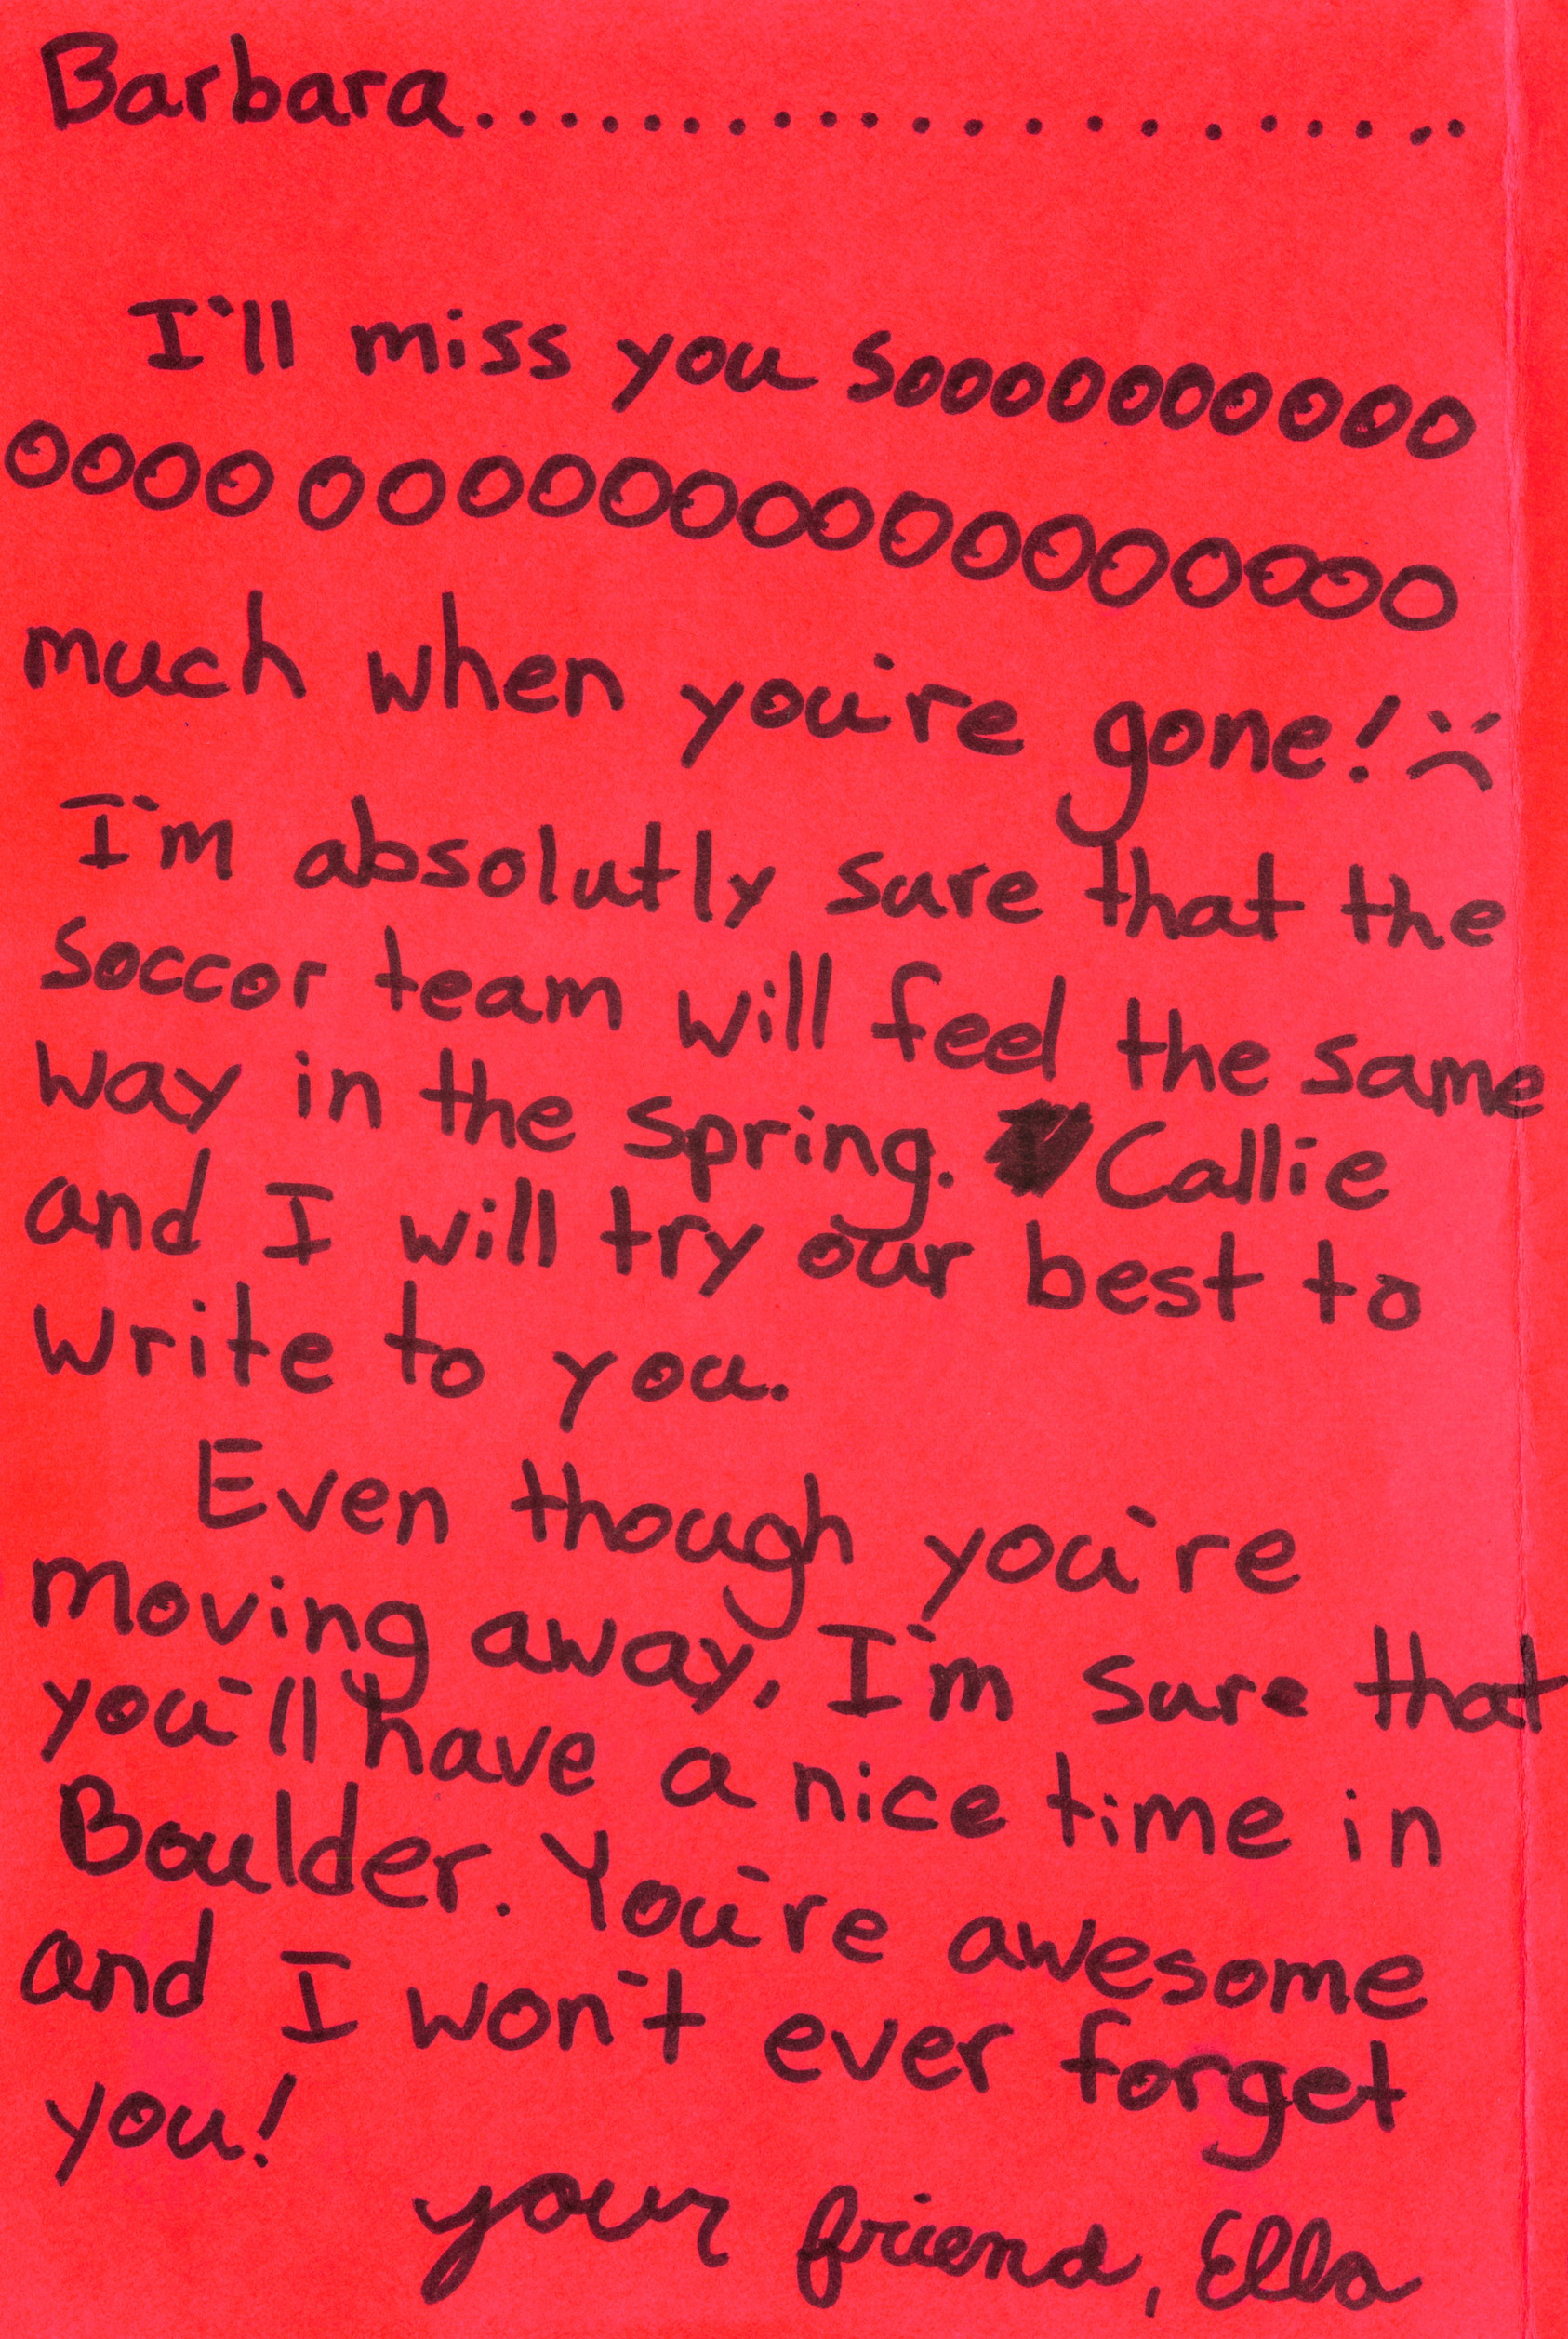 Barbara........................
I'll miss you Sooooooooooo
oooo oooooooooooooooooo
much when you're gone! :(
I'm absolutly sure that the
soccor team will feel the same
way in the spring. Callie
and I will try our best to
write to you.
Even though you're
moving away, I'm sure that
you'll have a nice time in
Boulder. You're awesome
and I won't ever forget
you!
your friend, Ella